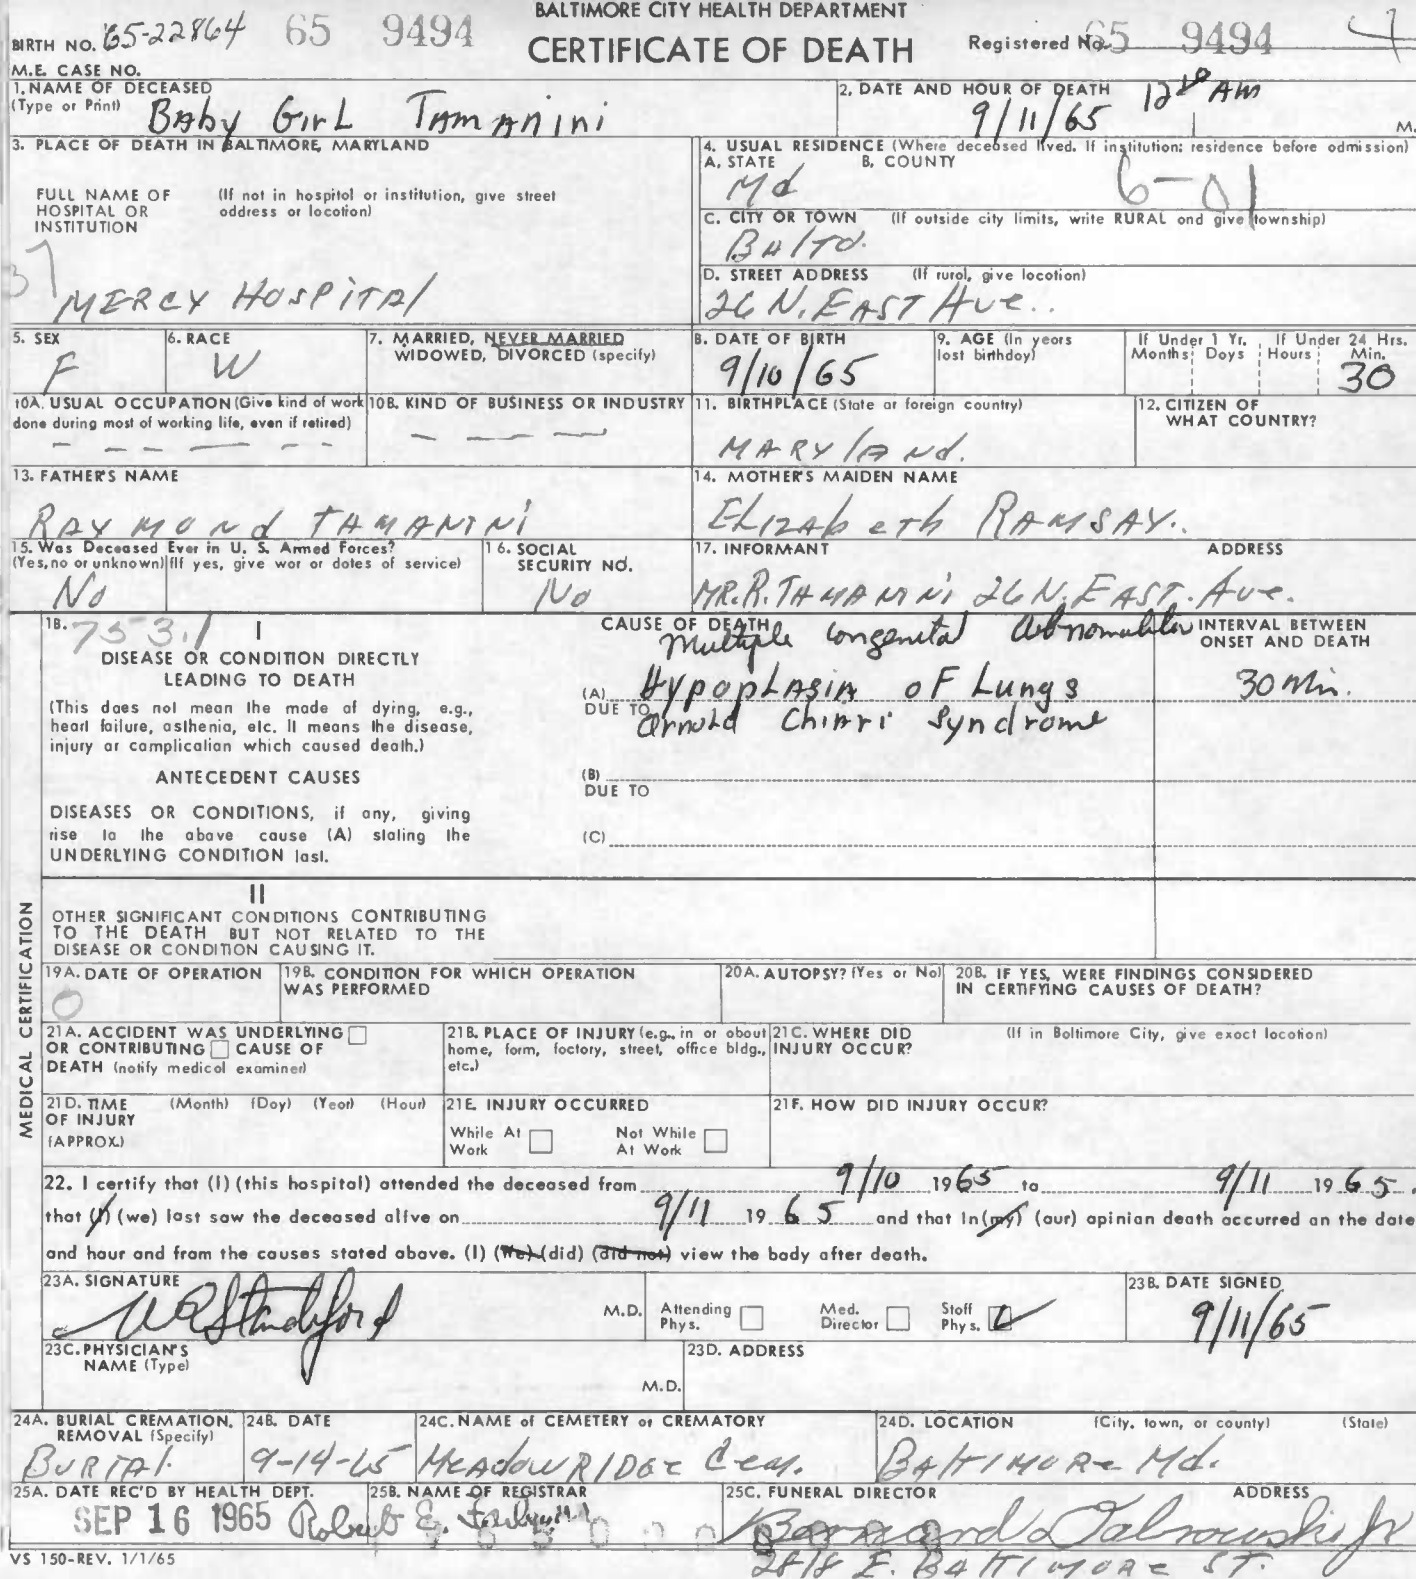 BALTIMORE CITY HEALTH DEPARTMENT
BIRTH NO. 65-22864 65 9494 CERTIFICATE OF DEATH Registered No. 65 9494
M.E. CASE NO.
1. NAME OF DECEASED
(Type or Print) Baby Girl Tamanini
2. DATE AND HOUR OF DEATH
9/11/65 AM M.
3. PLACE OF DEATH IN BALTIMORE, MARYLAND
FULL NAME OF HOSPITAL OR INSTITUTION (If not in hospital or institution, give street address or location)
37
MERCY HOSPITAL
4. USUAL RESIDENCE (Where deceased lived. If institution: residence before admission)
A. STATE B. COUNTY
Md 6-01
C. CITY OR TOWN (If outside city limits, write RURAL and give township)
BALTO.
D. STREET ADDRESS (If rural, give location)
26 N. EAST Ave..
5. SEX
F
6. RACE
W
7. MARRIED, NEVER MARRIED
WIDOWED, DIVORCED (specify)
8. DATE OF BIRTH
9/10/65
9. AGE (In years last birthday)
If Under 1 Yr. Months Days
If Under 24 Hrs. Hours Min.
30
10A. USUAL OCCUPATION (Give kind of work
done during most of working life, even if retired)
10B. KIND OF BUSINESS OR INDUSTRY
11. BIRTHPLACE (State or foreign country)
MARYLANd.
12. CITIZEN OF WHAT COUNTRY?
13. FATHER'S NAME
RAYMONd TAMANINI
14. MOTHER'S MAIDEN NAME
ELIZAbeth RAMSAY..
15. Was Deceased Ever in U. S. Armed Forces?
(Yes, no or unknown) (If yes, give war or dates of service)
No
16. SOCIAL SECURITY NO.
No
17. INFORMANT ADDRESS
MR. R. TAMANINI 26 N. EAST. Ave.
18. 753.1 I
DISEASE OR CONDITION DIRECTLY
LEADING TO DEATH
(This does not mean the mode of dying, e.g.,
heart failure, asthenia, etc. It means the disease,
injury or complication which caused death.)
ANTECEDENT CAUSES
DISEASES OR CONDITIONS, if any, giving
rise to the above cause (A) stating the
UNDERLYING CONDITION last.
CAUSE OF DEATH
Multiple Congenital
(A) Hypoplasia of Lungs
DUE TO
Arnold Chiari Syndrome
(B)
DUE TO
(C)
INTERVAL BETWEEN
ONSET AND DEATH
30 min.
II
OTHER SIGNIFICANT CONDITIONS CONTRIBUTING
TO THE DEATH BUT NOT RELATED TO THE
DISEASE OR CONDITION CAUSING IT.
MEDICAL CERTIFICATION
19A. DATE OF OPERATION
0
19B. CONDITION FOR WHICH OPERATION
WAS PERFORMED
20A. AUTOPSY? (Yes or No)
20B. IF YES, WERE FINDINGS CONSIDERED
IN CERTIFYING CAUSES OF DEATH?
21A. ACCIDENT WAS UNDERLYING
OR CONTRIBUTING CAUSE OF
DEATH (notify medical examiner)
21B. PLACE OF INJURY (e.g., in or about
home, farm, factory, street, office bldg.,
etc.)
21C. WHERE DID (If in Baltimore City, give exact location)
INJURY OCCUR?
21D. TIME (Month) (Day) (Year) (Hour)
OF INJURY
(APPROX.)
21E. INJURY OCCURRED
While At Work Not While At Work
21F. HOW DID INJURY OCCUR?
22. I certify that (I) (this hospital) attended the deceased from 9/10 1965 to 9/11 1965.
that (I) (we) last saw the deceased alive on 9/11 1965 and that in (my) (our) opinion death occurred on the date
and hour and from the causes stated above. (I) (We) (did) (did not) view the body after death.
23A. SIGNATURE
M.D.
Attending Phys. Med. Director Staff Phys.
23B. DATE SIGNED
9/11/65
23C. PHYSICIAN'S
NAME (Type)
M.D.
23D. ADDRESS
24A. BURIAL CREMATION,
REMOVAL (Specify)
BURIAL.
24B. DATE
9-14-65
24C. NAME of CEMETERY or CREMATORY
MEAdowRIDGE Cem.
24D. LOCATION (City, town, or county) (State)
BALTIMORE Md.
25A. DATE REC'D BY HEALTH DEPT.
SEP 16 1965
25B. NAME OF REGISTRAR
Robert E. Farber
25C. FUNERAL DIRECTOR ADDRESS
Bernard Dabrowski Jr
2818 E. BALTIMORE ST.
VS 150-REV. 1/1/65